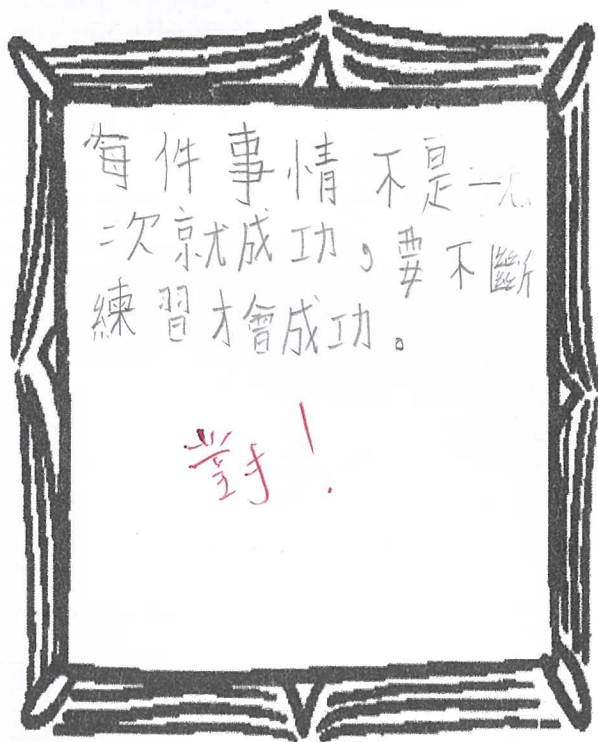 每件事情不是一
次就成功，要不斷
練習才會成功。
對！